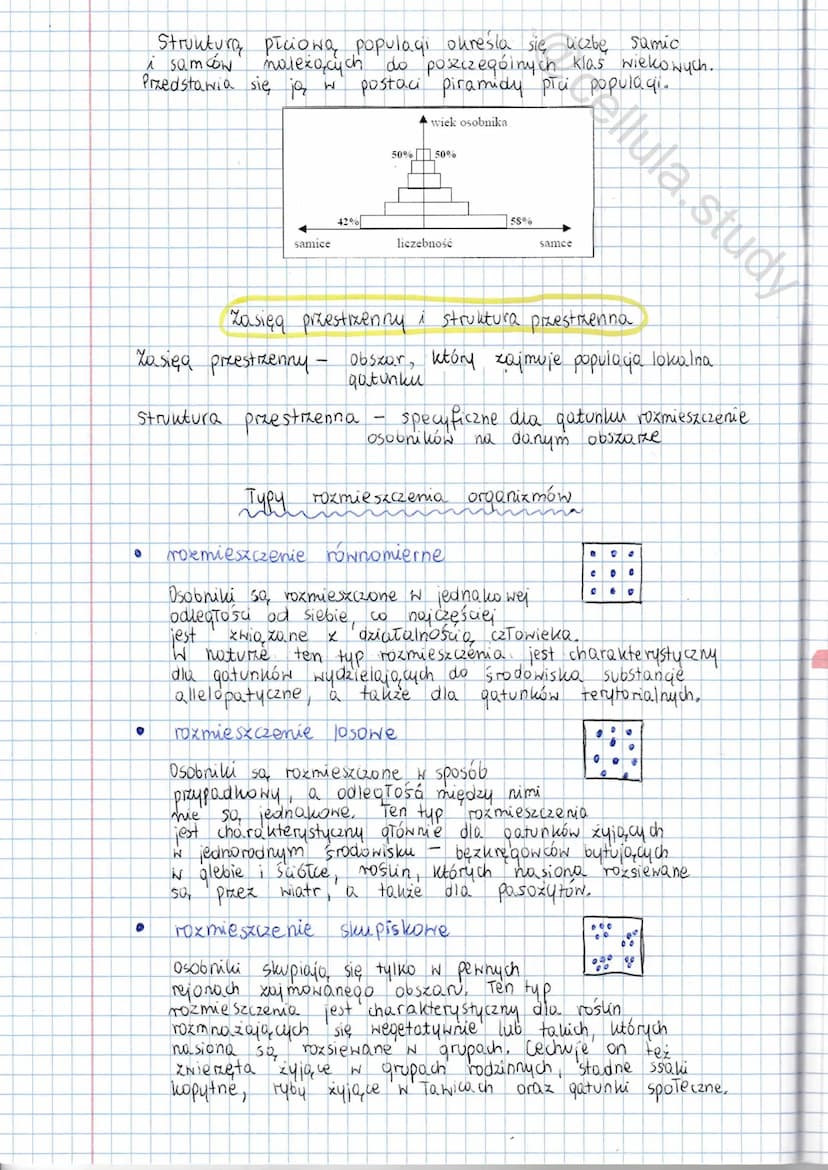 Strukturą płciową populacji określa się liczbę samic
i samców należących do poszczególnych klas wiekowych.
Przedstawia się ją w postaci piramidy płci populacji.
wiek osobnika
50% 50%
42% 58%
samice liczebność samce
@cellula.study
Zasięg przestrzenny i struktura przestrzenna
Zasięg przestrzenny – obszar, który zajmuje populacja lokalna
gatunku
Struktura przestrzenna – specyficzne dla gatunku rozmieszczenie
osobników na danym obszarze
Typy rozmieszczenia organizmów
• rozmieszczenie równomierne
Osobniki są rozmieszczone w jednakowej
odległości od siebie, co najczęściej
jest związane z działalnością człowieka.
W naturze ten typ rozmieszczenia jest charakterystyczny
dla gatunków wydzielających do środowiska substancje
allelopatyczne, a także dla gatunków terytorialnych.
• rozmieszczenie losowe
Osobniki są rozmieszczone w sposób
przypadkowy, a odległość między nimi
nie są jednakowe. Ten typ rozmieszczenia
jest charakterystyczny głównie dla gatunków żyjących
w jednorodnym środowisku – bezkręgowców bytujących
w glebie i ściółce, roślin, których nasiona rozsiewane
są przez wiatr, a także dla pasożytów.
• rozmieszczenie skupiskowe
Osobniki skupiają się tylko w pewnych
rejonach zajmowanego obszaru. Ten typ
rozmieszczenia jest charakterystyczny dla roślin
rozmnażających się wegetatywnie lub takich, których
nasiona są rozsiewane w grupach. Cechuje on też
zwierzęta żyjące w grupach rodzinnych, stadne ssaki
kopytne, ryby żyjące w ławicach oraz gatunki społeczne.